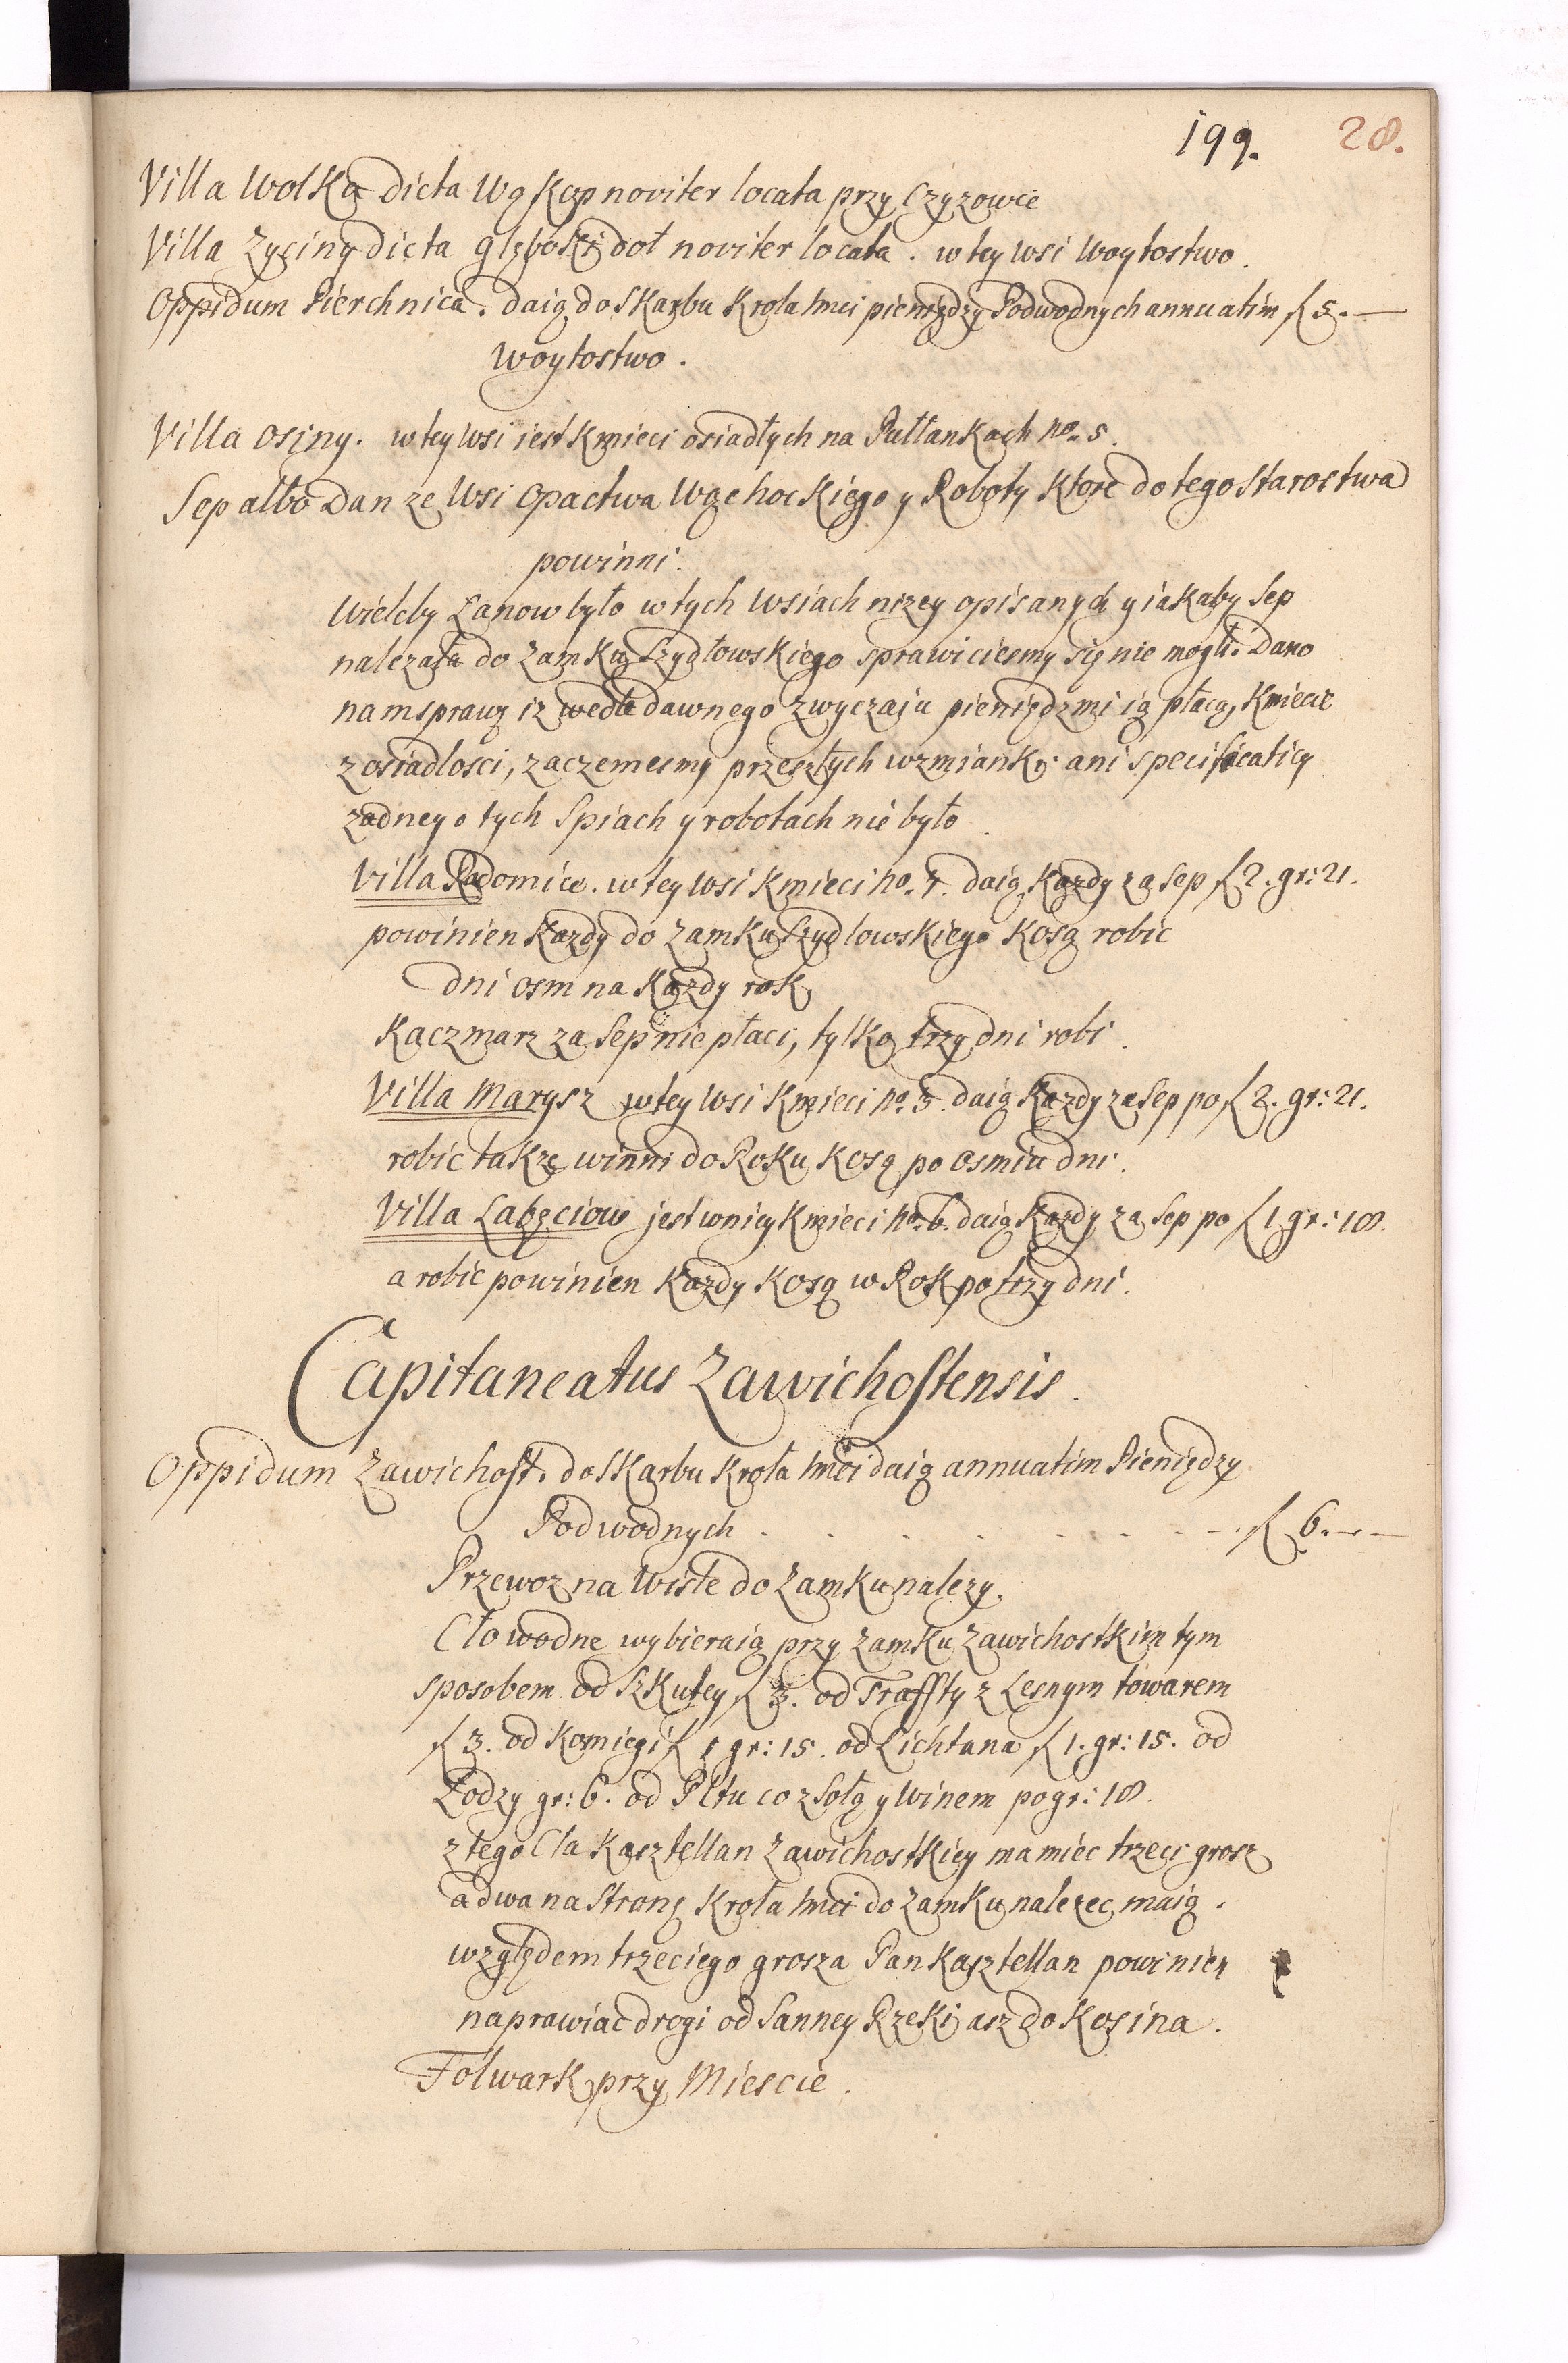 199. 28.
Villa Wolka dicta Wąkop noviter locata przy Czyzowie
Villa Zyciny dicta Głęboki doł noviter locata. w tey wsi Woytostwo.
Oppidum Pierchnica. daią do Skarbu Krola Jmci pieniędzy Podwodnych annuatim f 5.—
Woytostwo.
Villa Osiny. w tey wsi iest Kmieci osiadłych na Pułłankach no. 5.
Sep albo Dan ze Wsi Opactwa Wąchockiego y Roboty Ktore do tego Starostwa
powinni.
Wieleby Łanow było w tych Wsiach nizey opisanych y iakaby Sep
nalezała do Zamku Szydłowskiego sprawiciesmy się nie mogli. Dano
nam sprawę iz wedle dawnego zwyczaiu pieniędzmi ią płacą, Kmiecie
z osiadlosci, zaczemesmy przeszłych wzmianki ani specificaticy
zadney o tych Spiach y robotach nie było.
Villa Radomice. w tey wsi Kmieci no. 4. daią Kazdy za Sep f 2. gr: 21.
powinien Kazdy do Zamku Szydlowskiego Kosą robic
dni osm na Kazdy rok,
Kaczmarz za Sep nie płaci, tylko trzy dni robi.
Villa Marysz w tey wsi Kmieci no. 3. daią Kazdy za Sep po f 2. gr: 21.
robic takze winni do Roku Kosą po osmiu dni.
Villa Łabęciow jest w niey Kmieci no. 6. daią Kazdy za Sep po f 1 gr: 18.
a robic powinien Kazdy Kosą w Rok po trzy dni.
Capitaneatus Zawichostensis.
Oppidum Zawichost. do Skarbu Krola Jmci daią annuatim Pieniędzy
Podwodnych . . . . . . . . f 6.—
Przewoz na Wisle do Zamku nalezy.
Cło wodne wybieraią przy Zamku Zawichostkim tym
sposobem od Szkutey f 3. od Traffty z Lesnym towarem
f 3. od Komiegi f 1 gr: 15. od Lichtana f 1. gr: 15. od
Łodzy gr: 6. od Pltu co z Solą y Winem po gr: 18.
z tego Cla Kasztellan Zawichostkiey ma miec trzeci grosz
a dwa na Stronę Krola Jmci do Zamku nalezec maią.
względem trzeciego grosza Pan Kasztellan powinien
naprawiac drogi od Sanney Rzeki asz do Kosina.
Folwark przy Miescie.